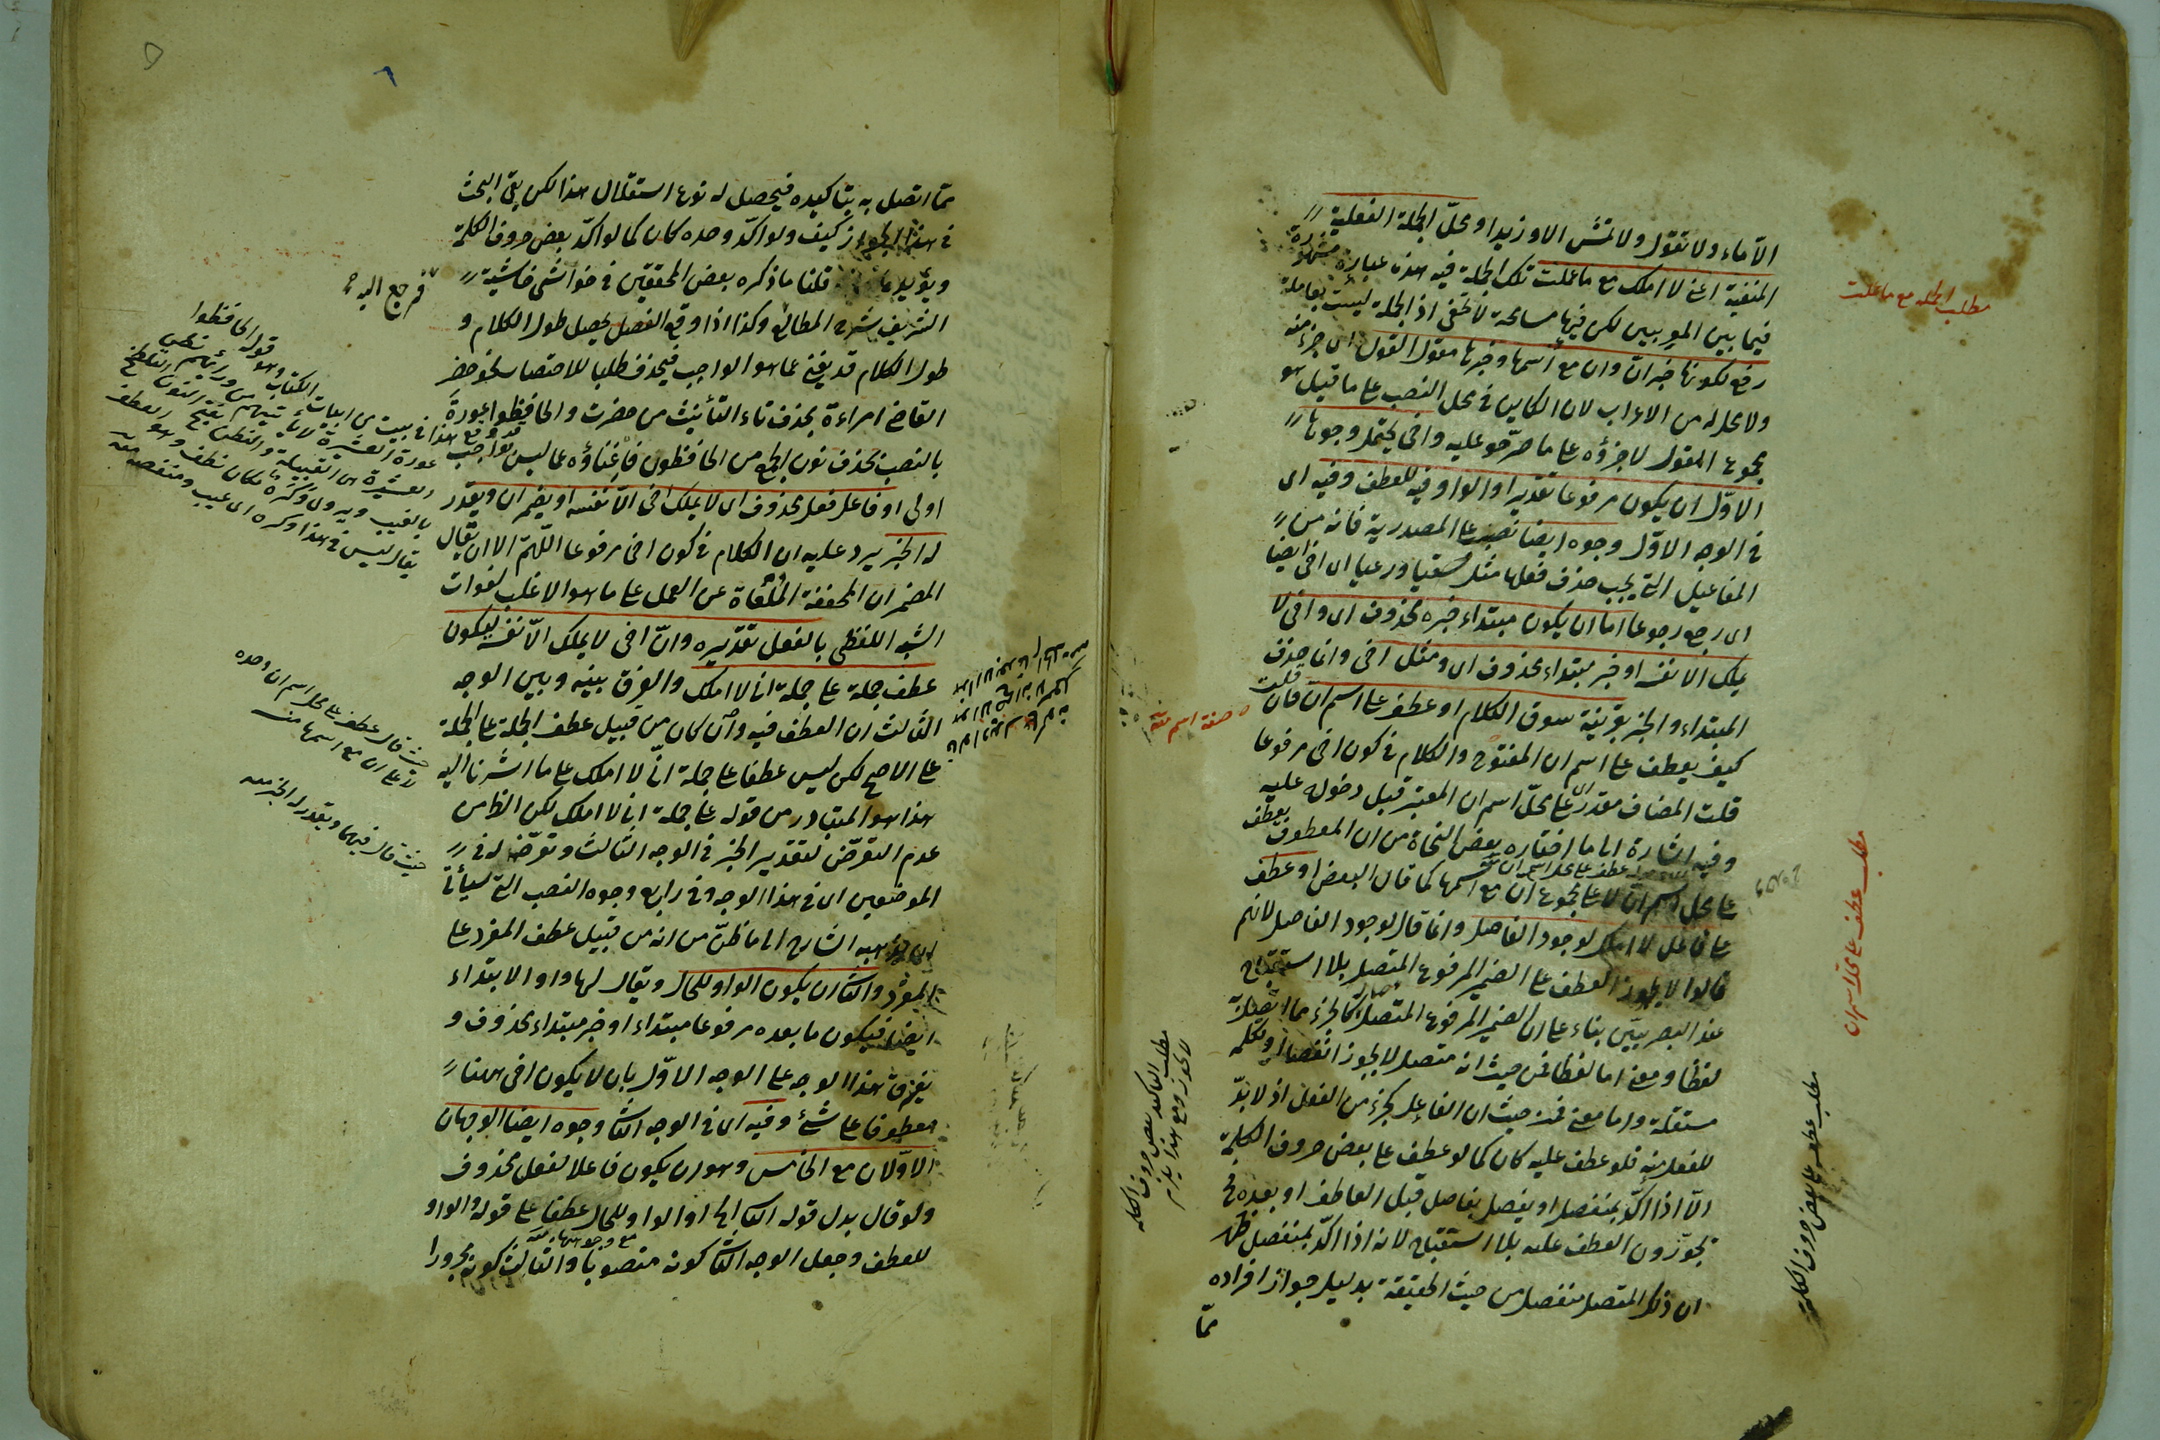 الآماء ولا تقول ولا تمش الا وزيدا ومحل الجملة الفعلية
المنفية اعنى لا املك مع ما عملت تلك الجملة فيه هذه عبارة مشهورة
فيما بين المعربين لكن فيها مسامحة لا تخفى اذ الجملة ليست بعاملة
رفع لكونها خبر انّ وان مع اسمها وخبرها مقول القول اى جزء منه
ولا محل له من الاعراب لان الكاين فى محل النصب على ما قيل هو
مجموع المقول لا جزؤه على ما صرّحو عليه واخى يحتمل وجوها
الاوّل ان يكون مرفوعا تقديرا والواو فيه للعطف وفيه اى
فى الوجه الاوّل وجوه ايضا نصب على المصدرية فانه من
المفاعيل التى يجب حذف فعلها مثل سقيا ورعيا اى اخى ايضا
اى رجع رجوعا اما ان يكون مبتداء خبره محذوف اى واخى لا
يملك الا نفسه او خبر مبتداء محذوف اى ومثلى اخى وانما حذف
المبتداء والخبر بقرينة سوق الكلام او عطف على اسم انّ فان قلت
كيف يعطف على اسم ان المفتوح والكلام فى كون اخى مرفوعا
قلت المضاف مقدر اى على محلّ اسم ان المعتبر قبل دخوله عليه
وفيه اشارة الى ما اختاره بعض النحاة من ان المعطوف يعطف
على محل اسم انّ لا على مجموع ان مع اسمها كما قال البعض او عطف
على فاعل لا املك لوجود الفاصل وانما قال لوجود الفاصل لانهم
قالوا لا يجوز العطف على الضمير المرفوع المتصل بلا استقباح
عند البصريين بناء على ان الضمير المرفوع المتصل كالجزء مما اتصل به
لفظا ومعنى اما لفظا فمن حيث انه متصل لا يجوز انفصاله وكلمة
مستقلة واما معنى فمن حيث ان الفاعل كجزء من الفعل اذ لا بدّ
للفعل منه فلو عطف عليه كان كما لو عطف على بعض حروف الكلمة
الّا اذا اكّد بمنفصل او يفصل بفاصل قبل العاطف او بعده فح
يجوّزون العطف عليه بلا استقباح لانه اذا اكّد بمنفصل ظهر
ان ذلك المتصل منفصل من حيث الحقيقة بدليل جواز افراده
ممّا
مطلب الجملة مع ما عملت
صفة اسم
مطلب عطف على محل اسم ان
مطلب عطف على بعض حروف الكلمة
مطلب التأكيد بعض حروف الكلمة
لا يجوز ومع هذا يلزم
ممّا اتصل به بتاكيده فيحصل له نوع استقلال هذا لكن بقى البحث
فى هذا الجواز كيف ولو اكّد وحده كان كما لو اكّد بعض حروف الكلمة
ويؤيد ما قلنا ما ذكره بعض المحققين فى حواشى حاشية
الشريف بشرح المطالع وكذا اذا وقع الفصل يحصل طول الكلام و
طول الكلام قد يغنى عما هو الواجب فيحذف طلبا للاختصار نحو حضر
القاضى امراءة بحذف تاء التأنيث من حضرت والحافظوا عورة
بالنصب بحذف نون الجمع من الحافظون فاغناؤه عما ليس بواجب
اولى او فاعل فعل محذوف اى لا يملك اخى الّا نفسه او يضمر ان ويقدّر
له الخبر يرد عليه ان الكلام فى كون اخى مرفوعا اللّهمّ الا ان يقال
المضمر ان المخففة الملغاة عن العمل على ما هو الاغلب لفوات
الشبه اللفظى بالفعل تقديره وانّ اخى لا يملك الّا نفسه فيكون
عطف جملة على جملة انى لا املك والفرق بينه وبين الوجه
الثالث ان العطف فيه وان كان من قبيل عطف الجملة على الجملة
على الاصح لكن ليس عطفا على جملة انّى لا املك على ما اشرنا اليه
هذا هو المتبادر من قوله على جملة انى لا املك لكن الظاهر من
عدم التعرّض لتقدير الخبر فى الوجه الثالث وتعرّضه له فى
الموضعين اى فى هذا الوجه وفى رابع وجوه النصب التى سيأتى
الشارح الى ما ظنّ من انه من قبيل عطف المفرد على
المفرد والثانى ان يكون الواو للحال ويقال لها واو الابتداء
ايضا فيكون ما بعده مرفوعا مبتداء او خبر مبتداء محذوف و
يفرق هذا الوجه على الوجه الاوّل بان لا يكون اخى هنا
معطوفا على شئ وفيه اى فى الوجه الثانى وجوه ايضا الوجهان
الاوّلان مع الخامس وهو ان يكون فاعلا لفعل محذوف
ولو قال بدل قوله الثانى الخ او الواو للحال عطفا على قوله والواو
للعطف وجعل الوجه الثانى كونه منصوبا والثالث كونه مجرورا
فرجع اليه
حيث قال عطف على محل اسم ان وحده
حيث قال فيهما ويقدر له الخبر منه